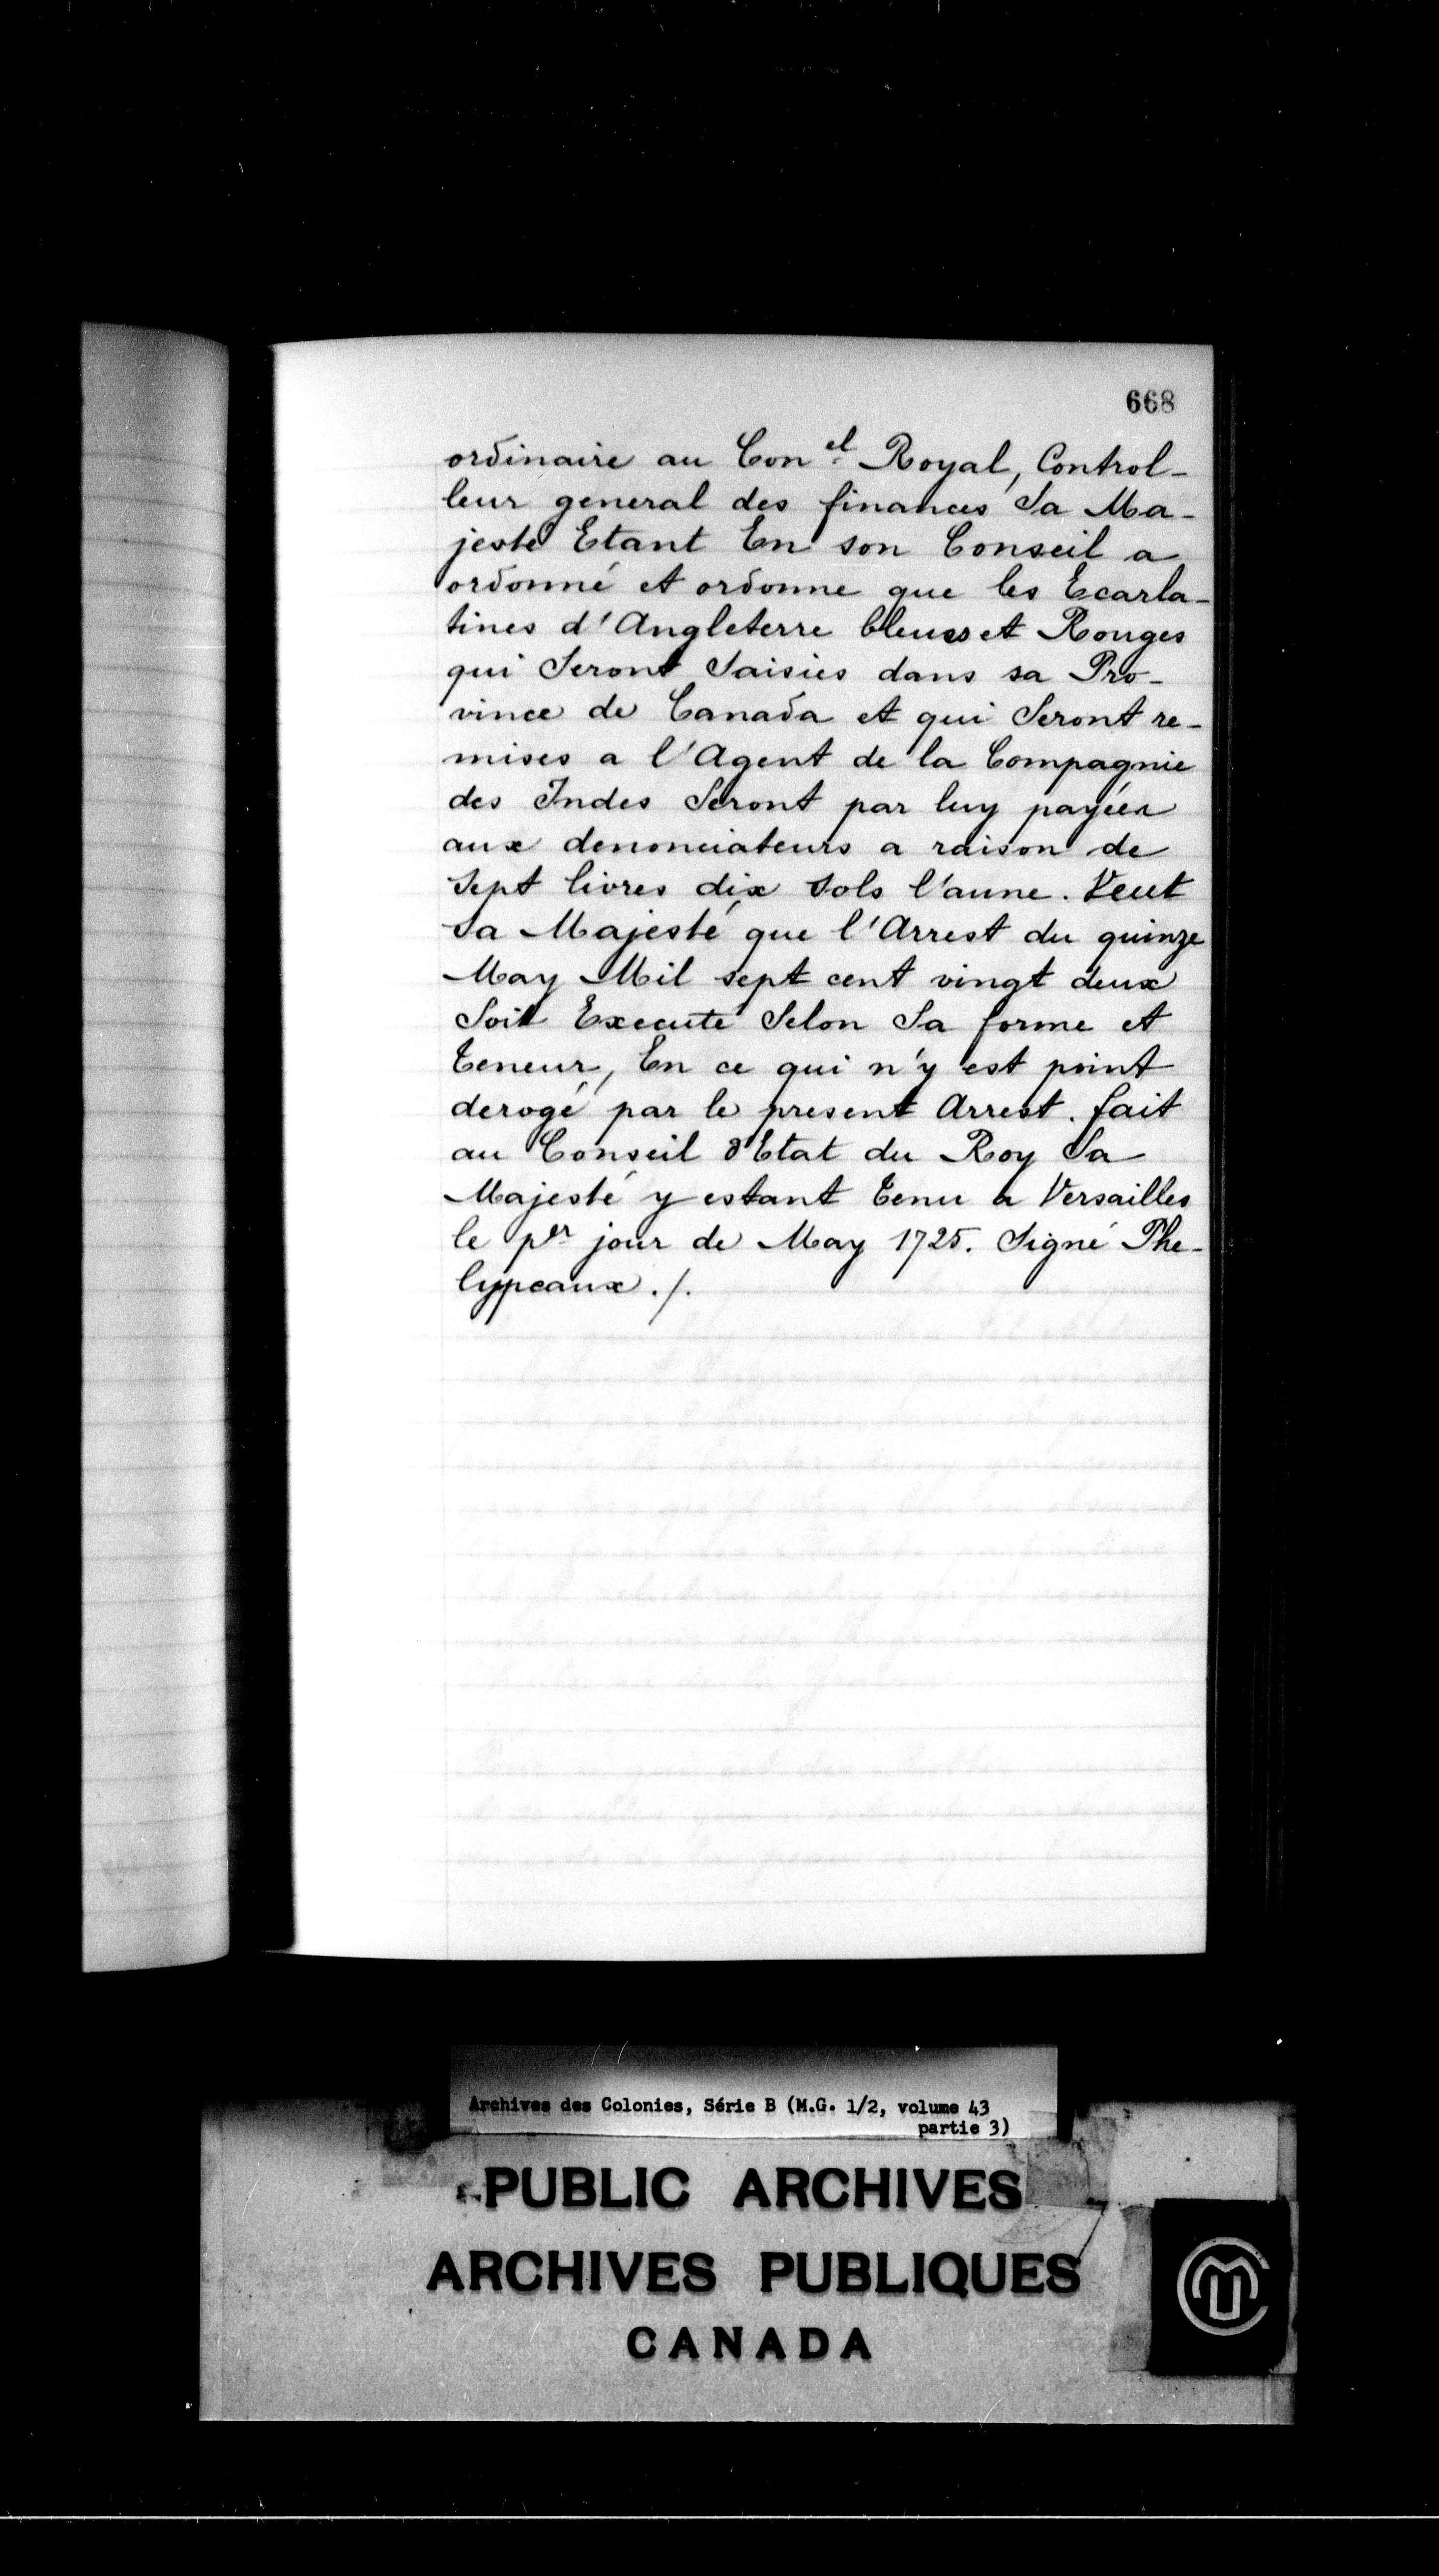 668
ordinaire au Con.el Royal, Control-
leur general des finances Sa Ma-
jesté Etant En son Conseil a
ordonné et ordonne que les Ecarla-
tines d'Angleterre bleues et Rouges
qui Seront Saisies dans sa Pro-
vince de Canada et qui Seront re-
mises a l'Agent de la Compagnie
des Indes Seront par luy payées
aux denonciateurs a raison de
Sept livres dix Sols l'aune. Veut
Sa Majesté que l'Arrest du quinze
May Mil sept cent vingt deux
Soit Executé Selon Sa forme et
teneur, En ce qui n'y est point
derogé par le present Arrest. fait
au Conseil d'Etat du Roy Sa
Majesté y estant tenu a Versailles
le per jour de May 1725. Signé Phe-
lypeaux ./.
Archives des Colonies, Série B (M.G. 1/2, volume 43
partie 3)
PUBLIC ARCHIVES
ARCHIVES PUBLIQUES
CANADA